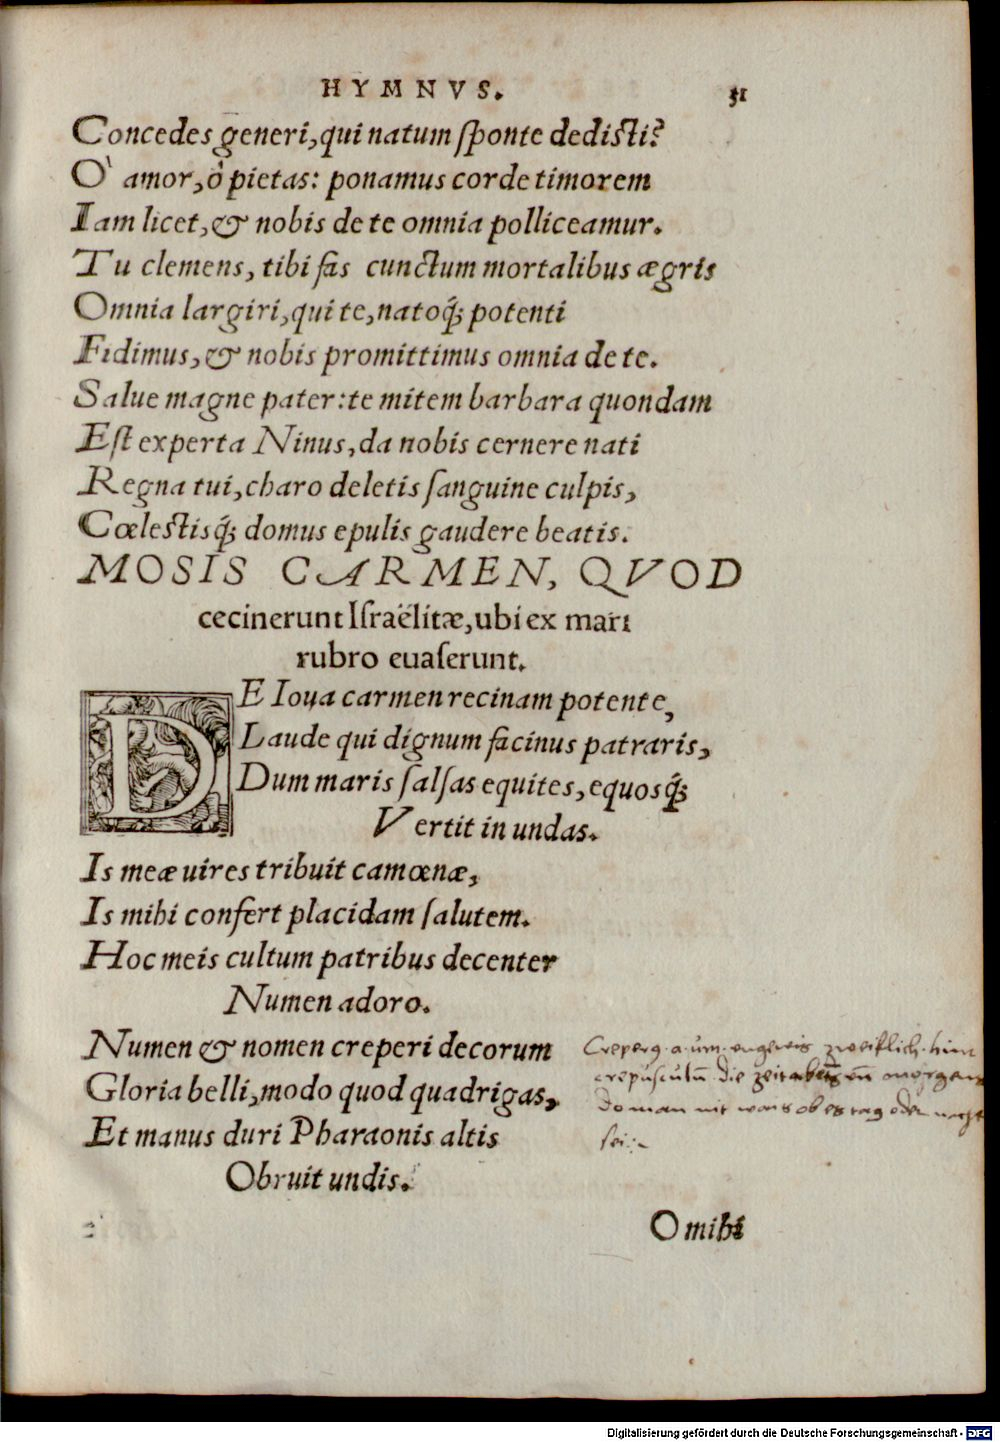 HYMNVS. 31
Concedes generi, qui natum ſponte dediſti?
O` amor, ò pietas: ponamus corde timorem
Iam licet, & nobis de te omnia polliceamur.
Tu clemens, tibi fas cunctum mortalibus ægris
Omnia largiri, qui te, natoq́; potenti
Fidimus, & nobis promittimus omnia de te.
Salue magne pater: te mitem barbara quondam
Eſt experta Ninus, da nobis cernere nati
Regna tui, charo deletis ſanguine culpis,
Cœleſtisq́; domus epulis gaudere beatis.
MOSIS CARMEN, QVOD
cecinerunt Iſraëlitæ, ubi ex mari
rubro euaſerunt.
DE Ioua carmen recinam potente,
Laude qui dignum facinus patraris,
Dum maris ſalſas equites, equosq́;
Vertit in undas.
Is meæ uires tribuit camœnæ,
Is mihi confert placidam ſalutem.
Hoc meis cultum patribus decenter
Numen adoro.
Numen & nomen creperi decorum
Gloria belli, modo quod quadrigas,
Et manus duri Pharaonis altis
Obruit undis.
Creperꝰ. a. um. ungewis zweiflich. hinc
crepusculū. die zeit abetz uñ morgens
do man nit wais ob es tag oder nacht
sei:~
O mihi
Digitalisierung gefördert durch die Deutsche Forschungsgemeinschaft - DFG